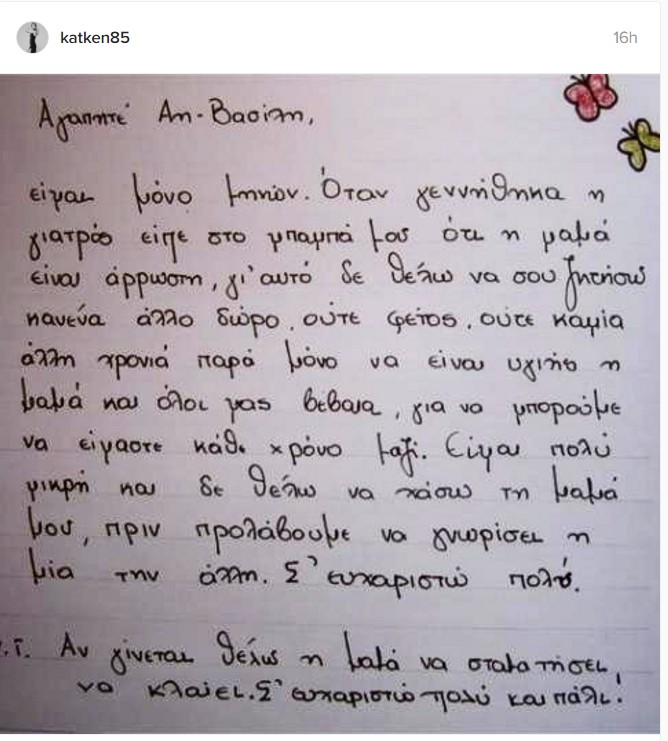 katken85 16h
Αγαπητέ Αη-Βασίλη,
είμαι μόνο μηνών. Όταν γεννήθηκα η
γιατρός είπε στο μπαμπά μου ότι η μαμά
είναι άρρωστη, γι'αυτό δε θέλω να σου ζητήσω
κανένα άλλο δώρο, ούτε φέτος, ούτε καμία
άλλη χρονιά παρά μόνο να είναι υγιής η
μαμά και όλοι μας βέβαια, για να μπορούμε
να είμαστε κάθε χρόνο μαζί. Είμαι πολύ
μικρή και δε θέλω να χάσω τη μαμά
μου, πριν προλάβουμε να γνωρίσει η
μία την άλλη. Σ'ευχαριστώ πολύ.
.Γ. Αν γίνεται θέλω η μαμά να σταματήσει
να κλαίει. Σ'ευχαριστώ πολύ και πάλι!